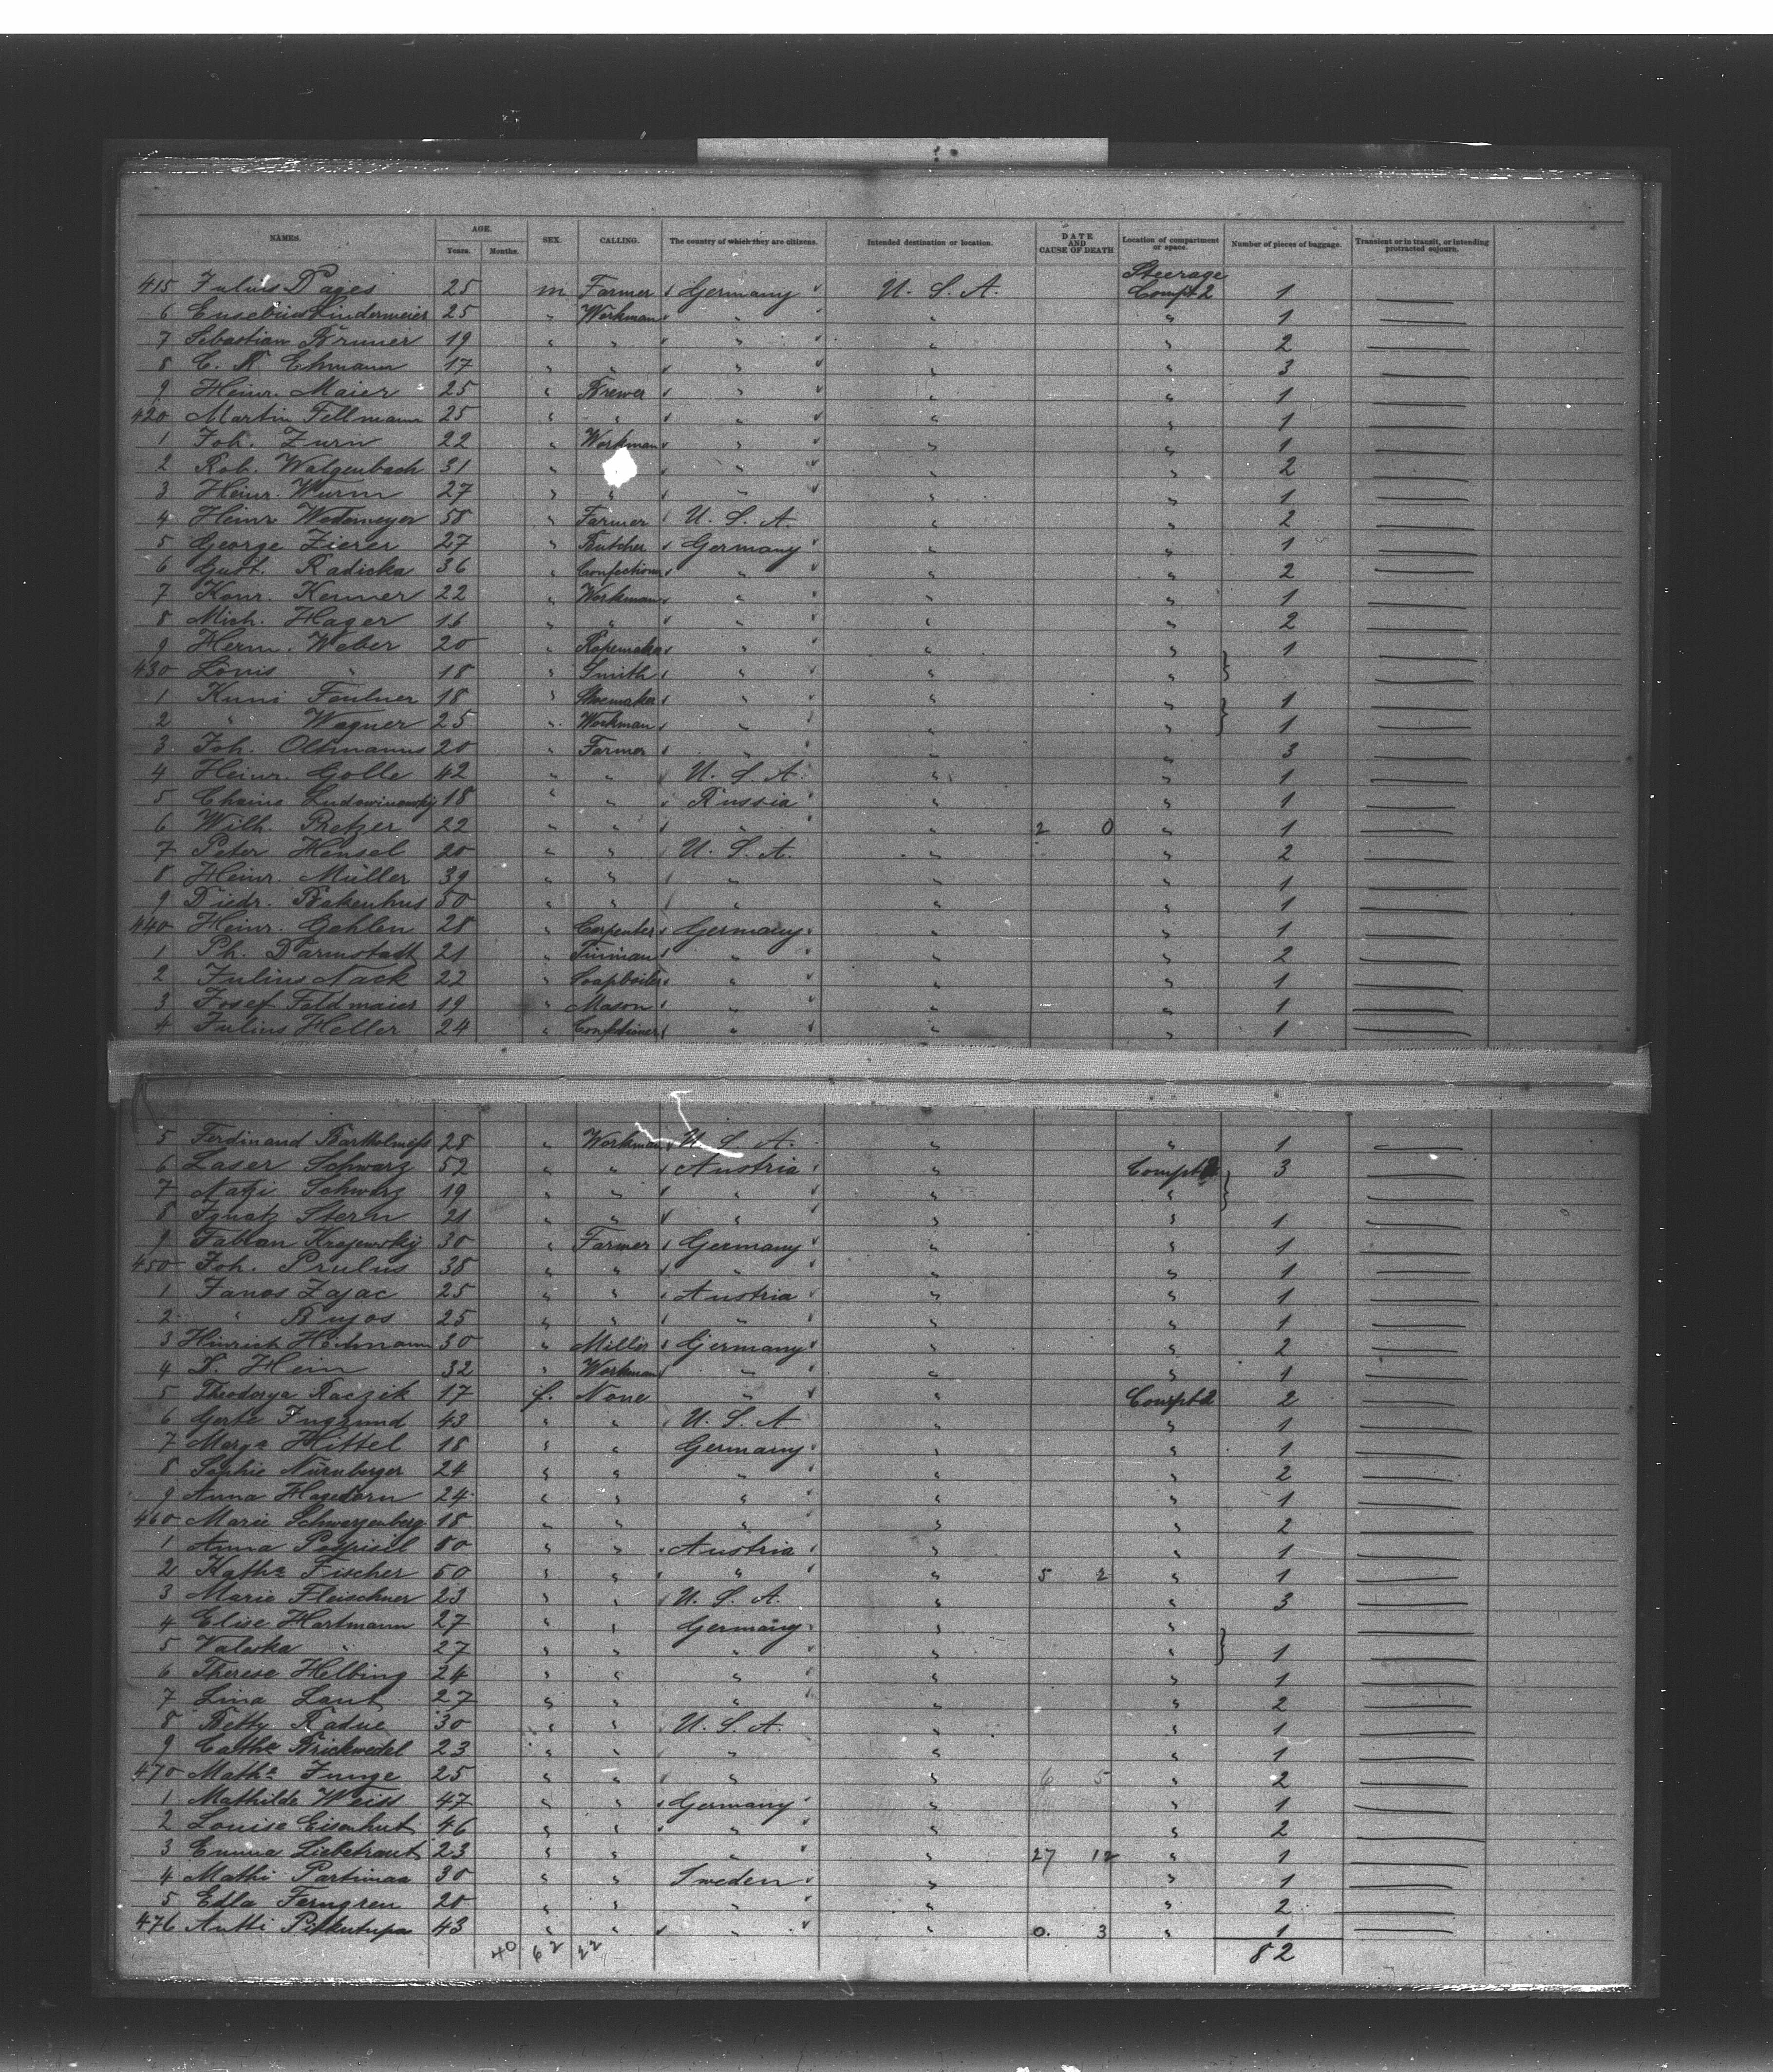 NAMES. AGE. SEX. CALLING. The country of which they are citizens. Intended destination or location. DATE AND CAUSE OF DEATH Location of compartment or space. Number of pieces of baggage. Transient or in transit, or intending protracted sojourn.
Years. Months.
Steerage
415 Julius Pages 25 m Farmer Germany U. S. A. Compt 2 1
6 Eusebius Lindermeier 25 " Workman " " " 1
7 Sebastian Bruner 19 " " " " " 2
8 C. R. Ehmann 17 " " " " " 3
9 Heinr. Maier 25 " Brewer " " " 1
420 Martin Fellmann 25 " " " " " 1
1 Joh. Zurn 22 " Workman " " " 1
2 Rob. Walgenbach 31 " " " " 2
3 Heinr. Wurm 27 " " " " " 1
4 Heinr. Wedemeyer 58 " Farmer U. S. A. " " 2
5 George Zierer 27 " Butcher Germany " " 1
6 Gust. Radicka 36 " Confectioner " " " 2
7 Konr. Kenner 22 " Workman " " " 1
8 Mich. Hager 16 " " " " " 2
9 Herm. Weber 20 " Ropemaker " " " 1
430 Louis " 18 " Smith " " "
1 Kuni 18 " Shoemaker " " " 1
2 " Wagner 25 " Workman " " " 1
3 Joh. Oltmanns 20 " Farmer " " " 3
4 Heinr. Golle 42 " " U. S. A. " " 1
5 Ludowinowsky 18 " " Russia " " 1
6 Wilh. Pretzer 22 " " " " 2 0 " 1
7 Peter Hensel 20 " " U. S. A. " " 2
8 Heinr. Müller 39 " " " " " 1
9 Diedr. Bakenhus 50 " " " " " 1
440 Heinr. Gehlen 28 " Carpenter Germany " " 1
1 Ph. Darmstadt 21 " Tinman " " " 2
2 Julius Nack 22 " Soapboiler " " " 1
3 Josef Feldmaier 19 " Mason " " " 1
4 Julius Heller 24 " Confectioner " " " 1
5 Ferdinand Bartholmess 28 " Workman U. S. A. " " 1
6 Laser Schwarz 52 " " Austria " Compt 3
7 Natzi Schwarz 19 " " " " "
8 Ignatz Stern 21 " " " " " 1
9 Fabian Krajewsky 30 " Farmer Germany " " 1
450 Joh. Prulus 38 " " " " " 1
1 Janos Zajac 25 " " Austria " " 1
2 " Bujos 25 " " " " " 1
3 Hinrich Heitmann 30 " Miller Germany " " 2
4 Hein 32 " Workman " " " 1
5 Theodorya Raczik 17 f. None " " Compt 2 2
6 Gerte Ingrund 43 " " U. S. A " " 1
7 Marga Hittel 18 " " Germany " " 1
8 Sophie Nürnberger 24 " " " " " 2
9 Anna Hagedorn 24 " " " " " 1
460 Marie Schwarzenberg 18 " " " " " 2
1 Anna Pospisil 50 " " Austria " " 1
2 Katha Fischer 50 " " " " 5 2 " 1
3 Marie Fleischner 23 " " U. S. A. " " 3
4 Elise Hartmann 27 " " Germany " "
5 Valeska " 27 " " " " " 1
6 Therese Helbing 24 " " " " " 1
7 Lina Laut 27 " " " " " 2
8 Betty Radue 30 " " U. S. A. " " 1
9 Catha Brickwedel 23 " " " " " 1
470 Matha Junge 25 " " " " 6 5 " 2
1 Mathilde Weiss 47 " " Germany " " 1
2 Louise Eisenhut 46 " " " " " 2
3 Emma Liebetraut 23 " " " " 27 12 " 1
4 Mathi Partimaa 30 " " Sweden " " 1
5 Edla Ferngren 20 " " " " " 2
476 Antti Pitkutupa 43 " " " " 0. 3 " 1
40 62 22 82